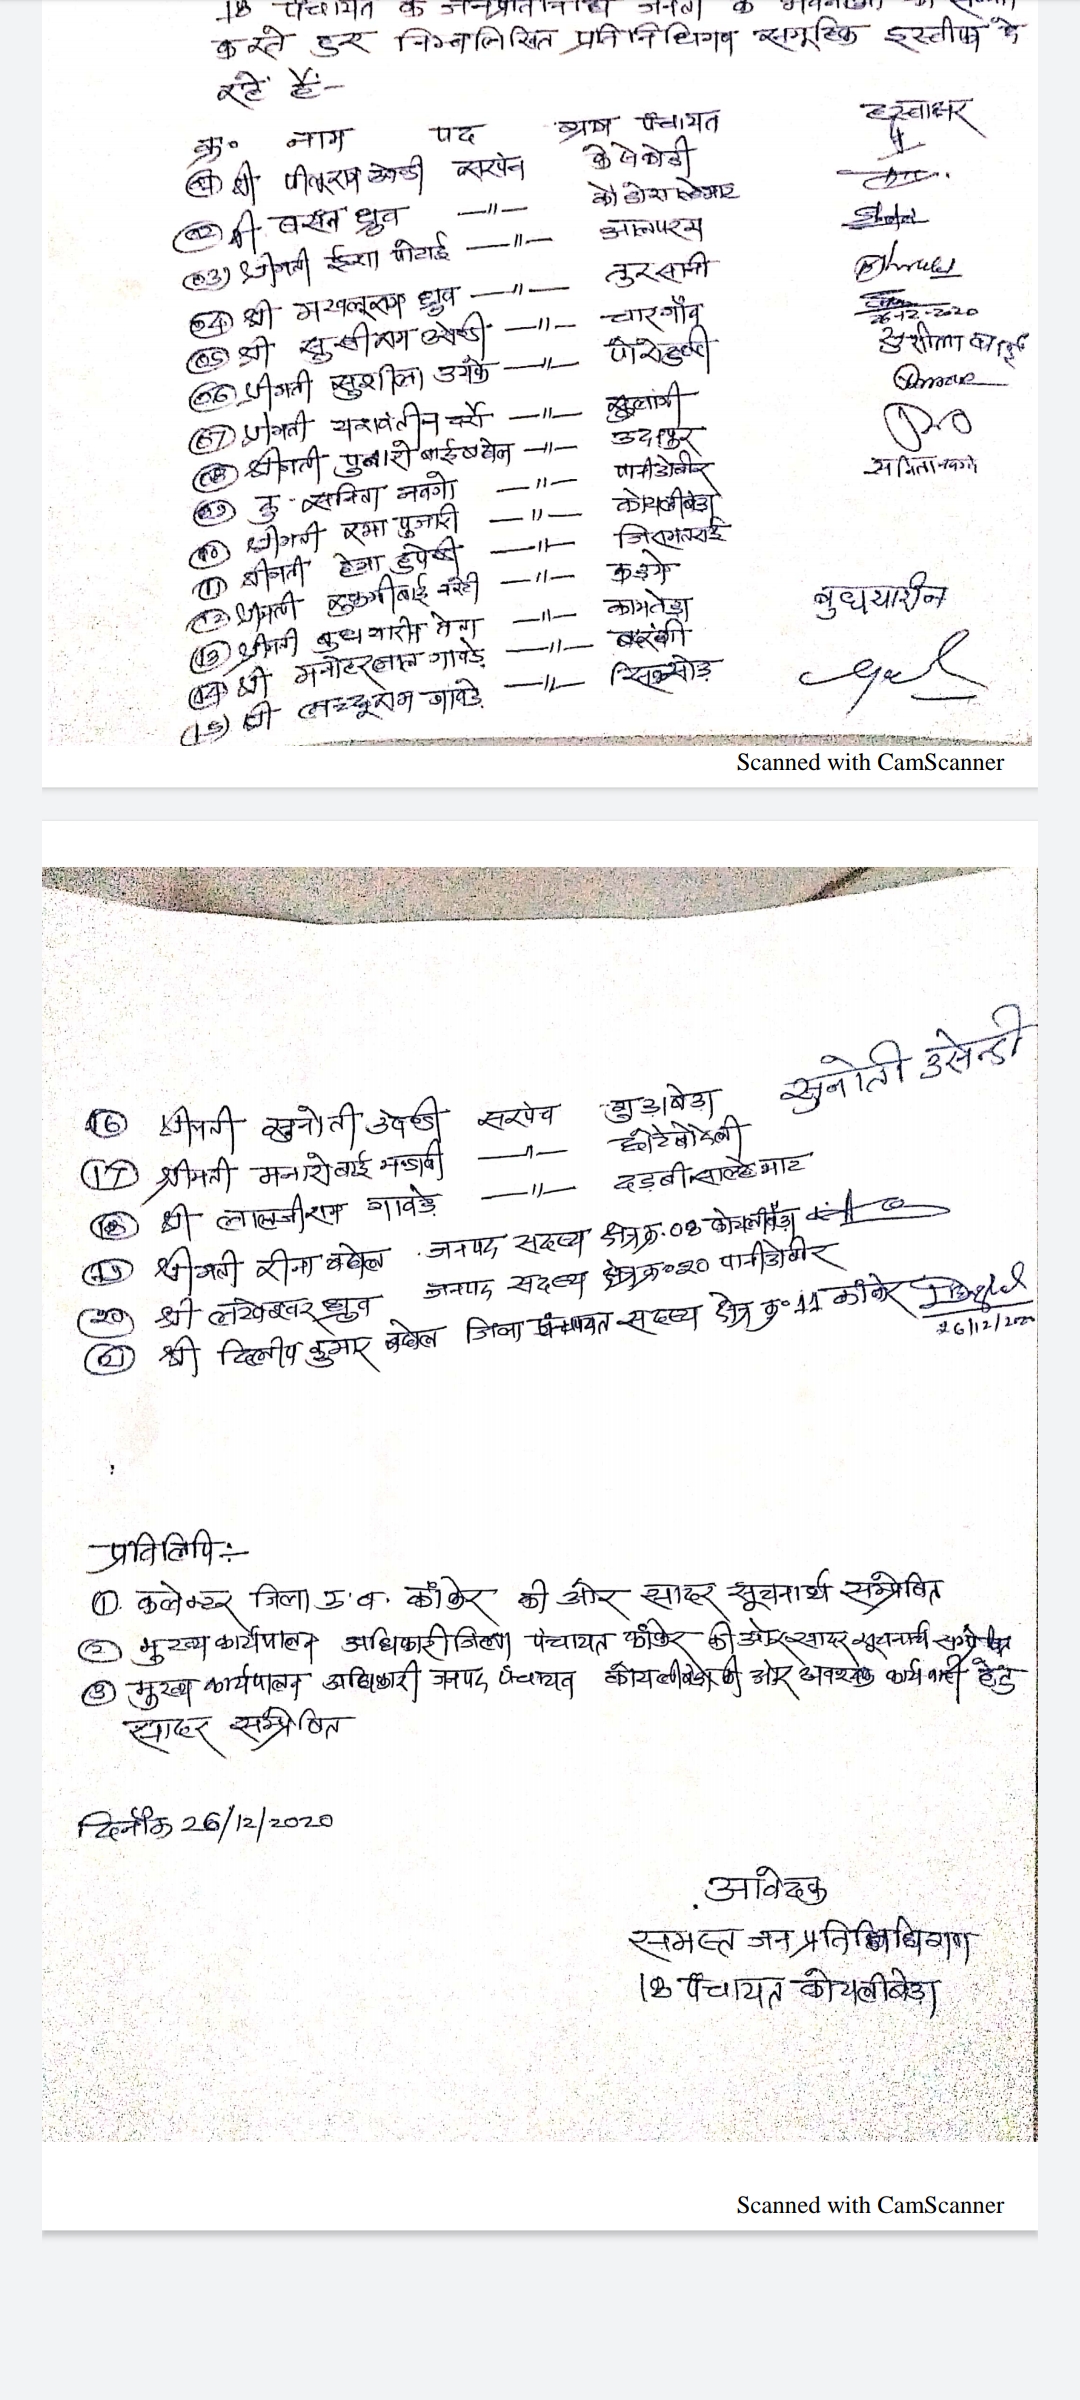 18 पंचायत के जनप्रतिनिधि जनता के
करते हुए निम्नलिखित प्रतिनिधिगण सामूहिक इस्तीफा दे
रहें हैं-
क्र० नाम पद ग्राम पंचायत हस्ताक्षर
श्री सरपंच
02 श्री बसंत ध्रुव —॥—
03) श्रीमती ईशा पोटाई —॥— आलपरस
04 श्री ध्रुव —॥— तुरसानी
05 श्री उसेण्डी —॥— चारगाँव
26-12-2020
06 श्रीमती सुशीला उयके —॥—
सुशीला बाई
07 श्रीमती —॥— सुलंगी
08 श्रीमती बाई बघेल —॥— उदनपुर
09 कु. सविता —॥— पानीडोबीर
10 श्रीमती रमा पुजारी —॥— कोयलीबेड़ा
11 श्रीमती हेमा —॥—
12 श्रीमती बाई नरेटी —॥— कड़मे
13 श्रीमती बुधयारीन —॥— कामतेड़ा
बुधयारीन
14 श्री मनोहरलाल गावड़े —॥—
(15) श्री गावड़े —॥— सिकसोड़
Scanned with CamScanner
सुनोती उसेन्डी
16 श्रीमती सुनोती उसेण्डी सरपंच गुड़ाबेड़ा
17 श्रीमती मनारोबाई मण्डावी —॥— छोटेबोदेली
18 श्री लालजीराम गावड़े —॥— दड़वीसाल्हेभाट
19 श्रीमती रीना बघेल जनपद सदस्य क्षेत्र क्र. 08 कोयलीबेड़ा
20 श्री ध्रुव जनपद सदस्य क्षेत्र क्र० 20 पानीडोबीर
21 श्री दिलीप कुमार बघेल जिला पंचायत सदस्य क्षेत्र क्र० 11 कांकेर
26/12/2020
प्रतिलिपि:-
1. कलेक्टर जिला उ.ब. काँकेर की ओर सादर सूचनार्थ सम्प्रेषित
2 मुख्य कार्यपालन अधिकारी जिला पंचायत काँकेर की ओर सादर सूचनार्थ सम्प्रेषित
3 मुख्य कार्यपालन अधिकारी जनपद पंचायत कोयलीबेड़ा की ओर आवश्यक कार्यवाही हेतु
सादर सम्प्रेषित
दिनाँक 26/12/2020
आवेदक
समस्त जन प्रतिनिधिगण
18 पंचायत कोयलीबेड़ा
Scanned with CamScanner